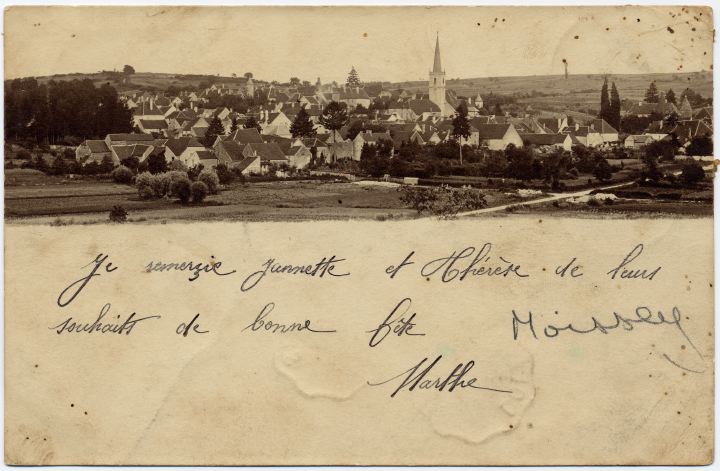 Je remerçie Jannette et Thérèse de leurs
souhaits de bonne fête Moissey
Marthe